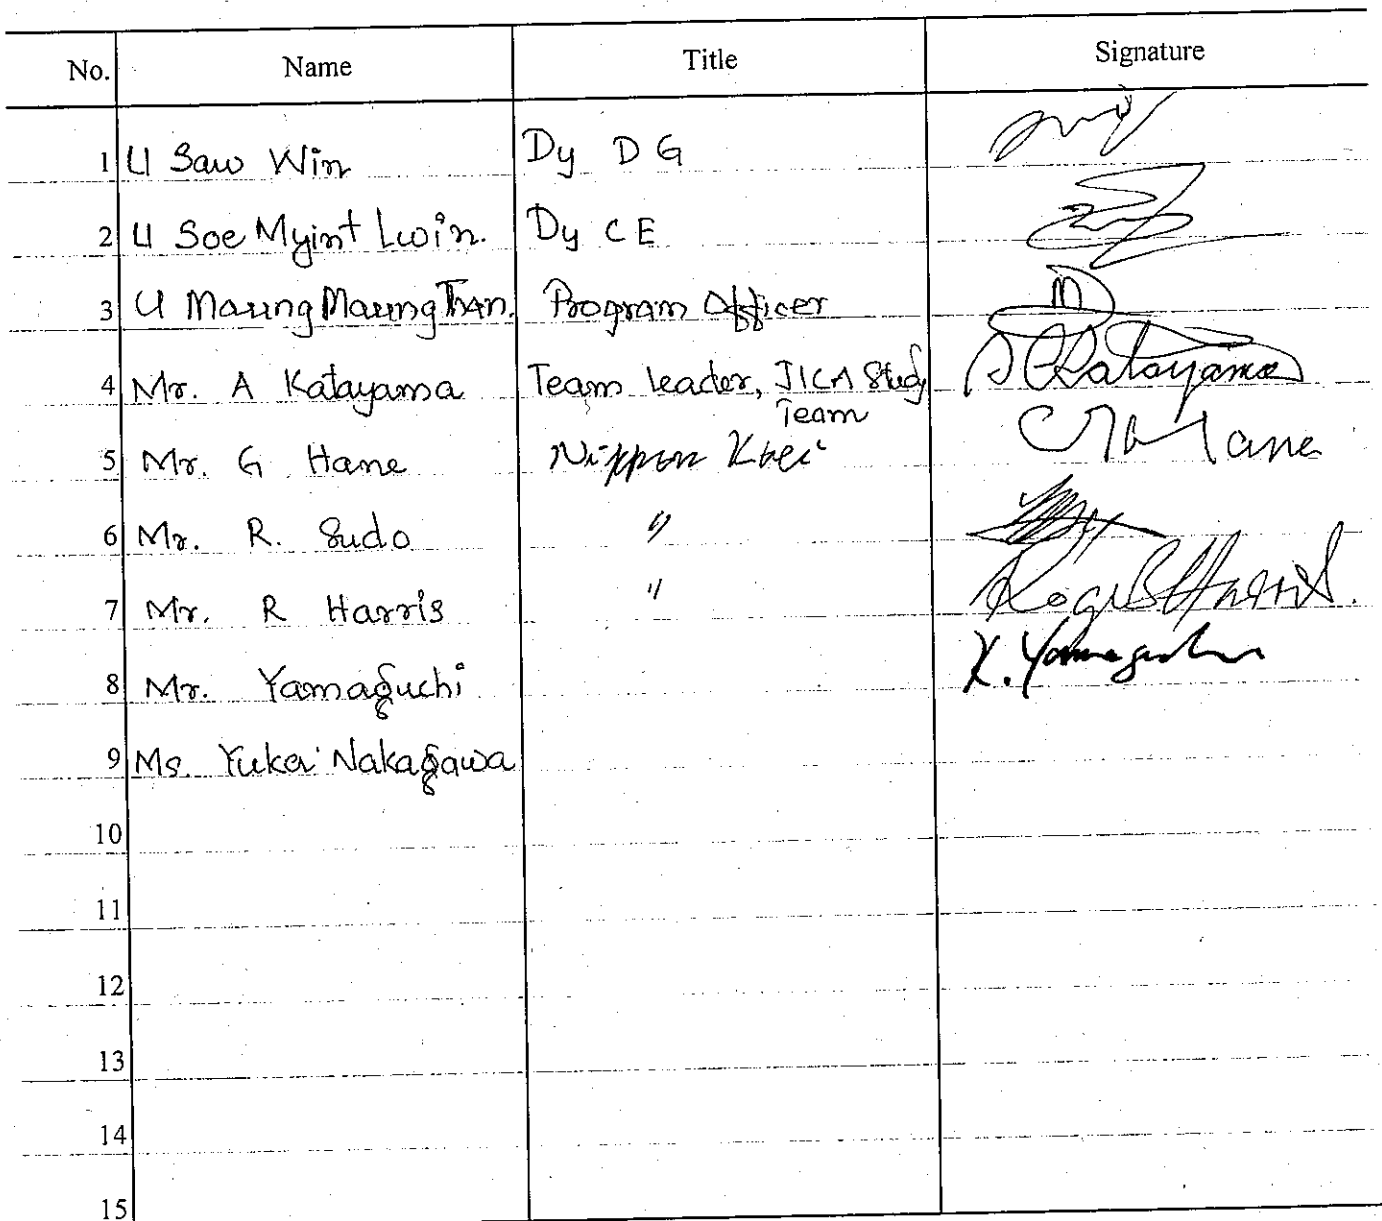 No. Name Title Signature
1 U Saw Win Dy D G
2 U Soe Myint Lwin. Dy C E
3 U Maung Maung Than. Program Officer
4 Mr. A Katayama Team leader, JICA Study Katayama
Team
5 Mr. G Hane Nippon Koei Hane
6 Mr. R. Sudo "
7 Mr. R Harris " Roger B Harris.
8 Mr. Yamaguchi K. Yamaguchi
9 Ms. Yuka Nakagawa
10
11
12
13
14
15